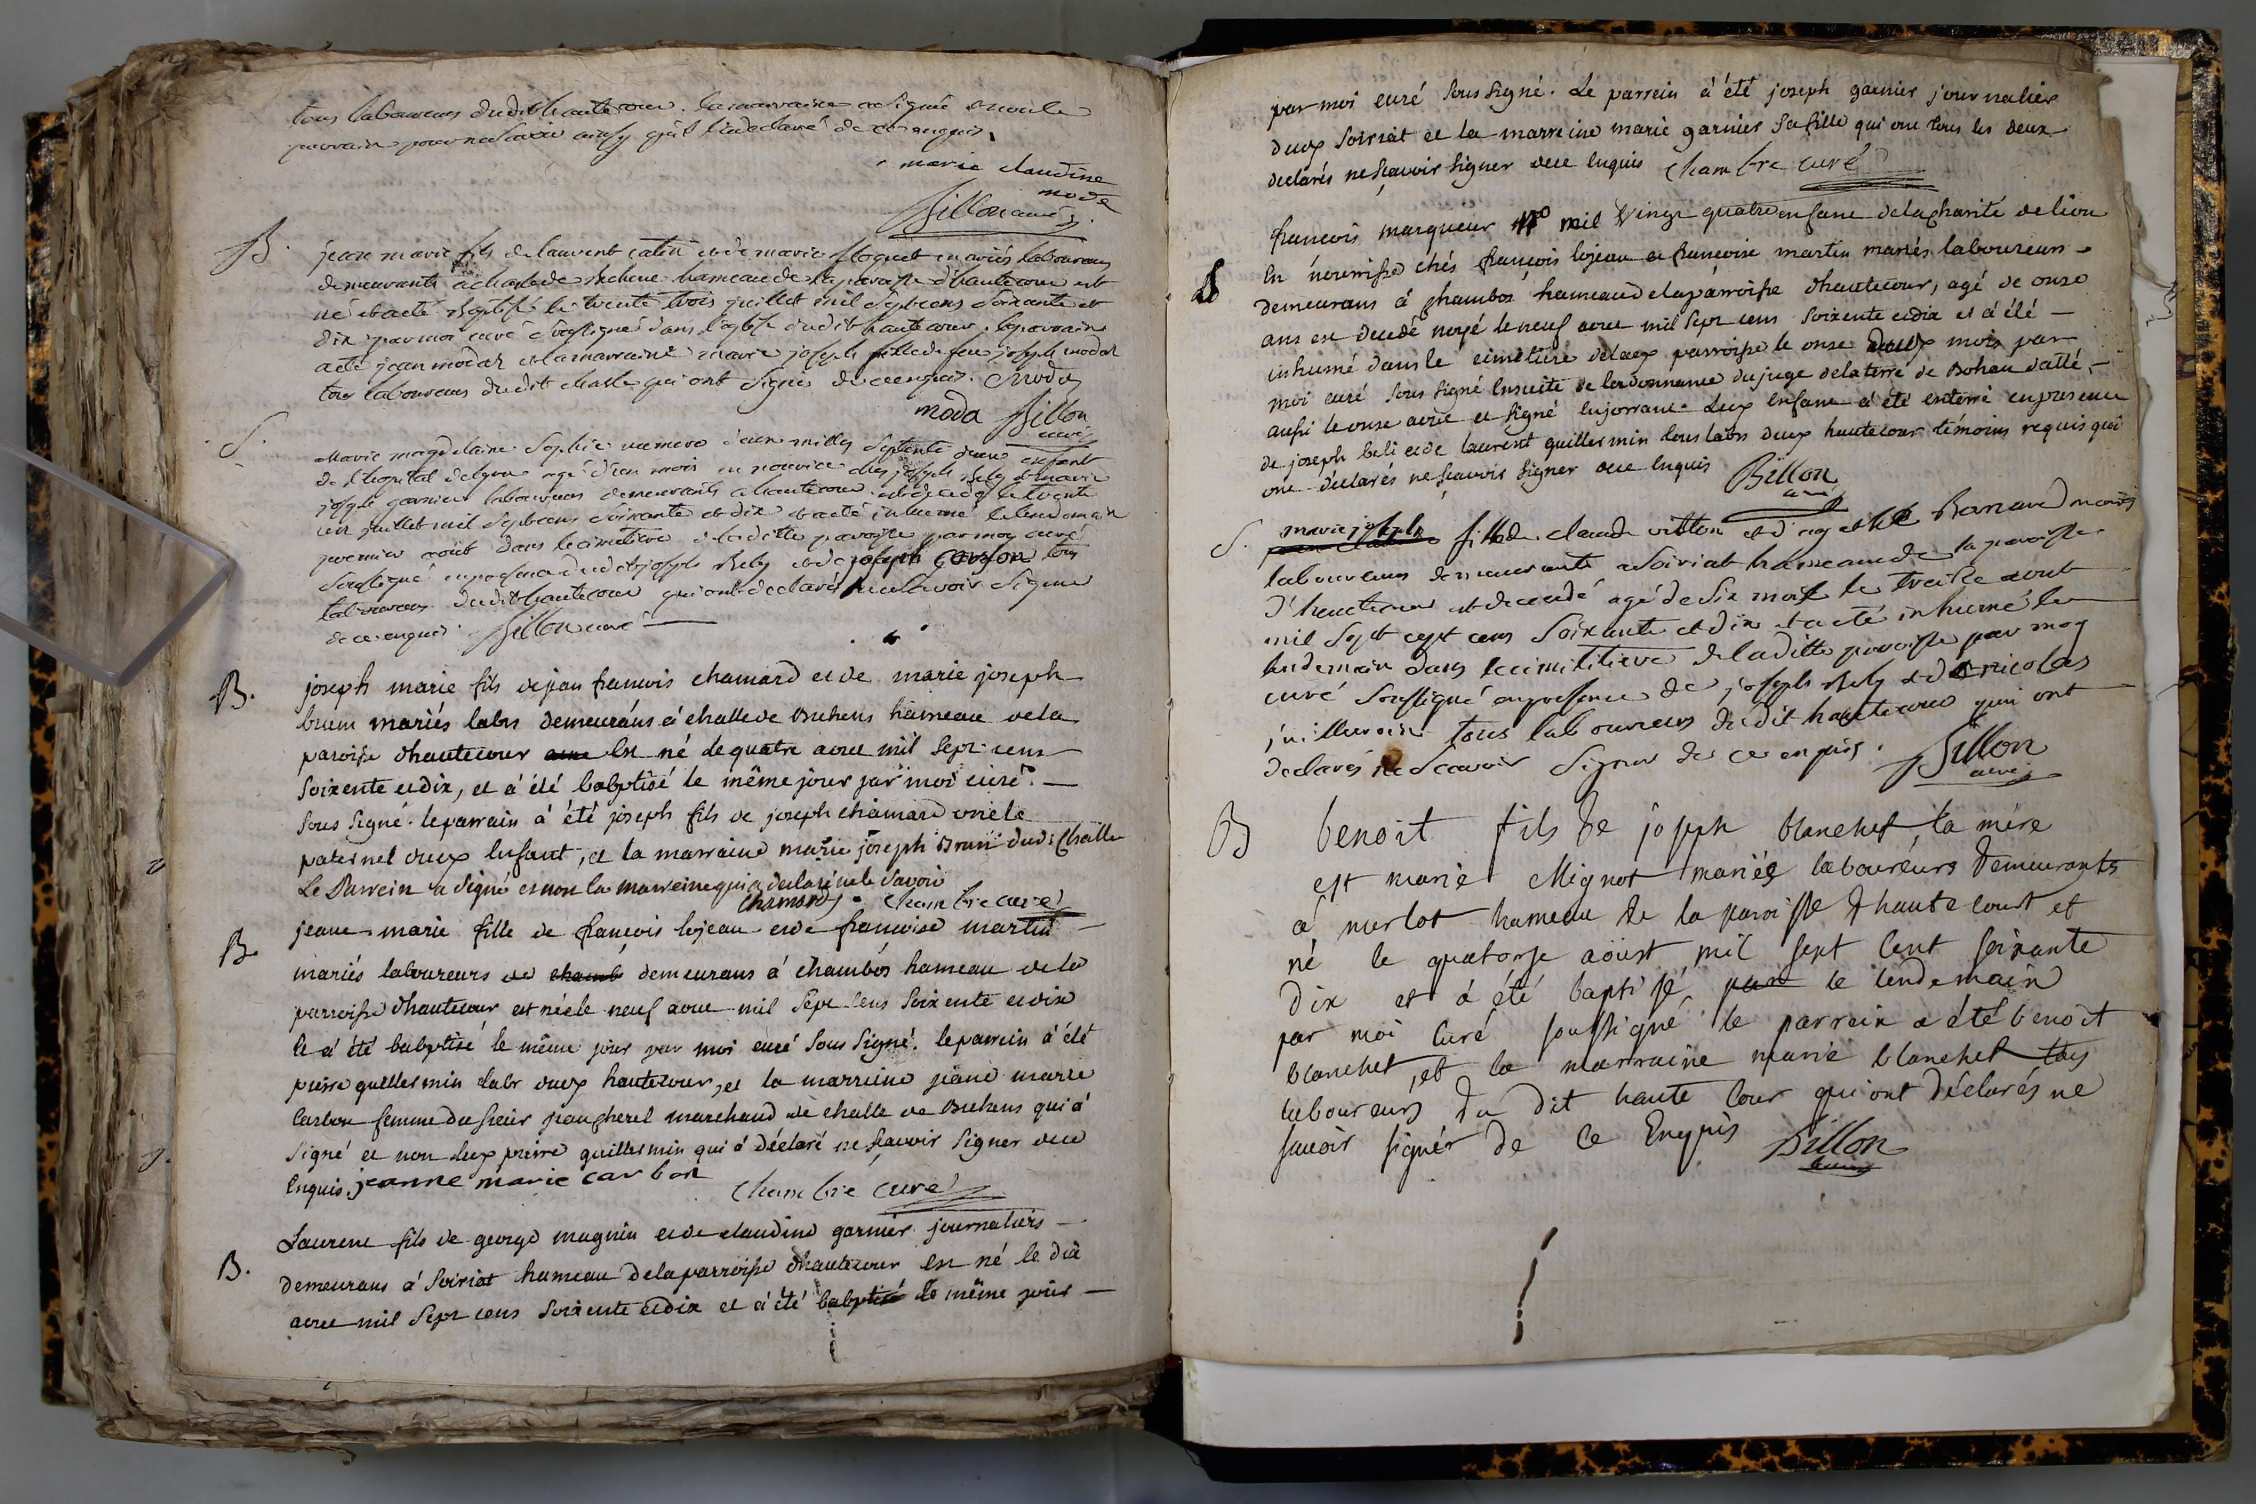 tous laboureurs dudit hautecour. la marraine a signé et non le
parrain pour ne savoir ainsy qu'il l'a declaré de ce enquis.
marie claudine
moda
Billon curé
B.
jean marie fils de laurent catin et de marie floquet mariés laboureurs
demeurants a challe de hameau de la paroisse d'hautecour est
né et a eté baptisé le trente trois juillet mil sept cens soixante et
dix par moi curé soussigné dans l'eglise dudit hautecour. le parrain
a eté jean modas et la marraine marie joseph fille de feu joseph modas
tous laboureurs dudit challe qui ont signés de ce enquis. moda
moda Billon
curé
S.
Marie magdelaine Sophie numero deux milles septente deux enfant
de l'hopital de lyon agé d'un mois en nourice ches joseph Bely et marie
joseph garnier laboureurs demeurants a hautecour est decedé le trente
un juillet mil sept cens soixante et dix et a eté inhumé le lendemain
premier août dans le cimetiere de la ditte paroisse par moy curé
soussigné en presence dudit joseph Bely et de joseph tous
laboureurs dudit hautecour qui ont declarés ne savoir signer
de ce enquis. Billon curé
B.
joseph marie fils de jean francois chamard et de marie joseph
brun mariés labrs demeurans á challe de Buhens hameau de la
paroisse dhautecour est né le quatre aout mil sept cens
soixente et dix, et á été babptisé le même jour par moi curé
sous signé. le parrain á été joseph fils de joseph chamard oncle
paternel dudt lenfant, et la marraine marie joseph Brun dudt Challe
Le Parrein a signé et non la marreine qui a declaré ne le savoir
Chamard. Chambre curé
B.
jeane marie fille de francois lojean et de francoise martin
mariés laboureurs de chamb demeurans á chambos hameau de la
parroisse dhautecour est née le neuf aout mil sept cens soixente et dix
et á été babptisé le même jour par moi curé sous signé. le parrein á été
pierre guillermin labr dudt hautecour, et la marreine jeane marie
carbon femme du sieur jean marchand de challe de Buhens qui á
signé et non ledt pierre guillermin qui á déclaré ne scavoir signer de ce
enquis. jeanne marie carbon
Chambre curé
B.
Laurent fils de george magnin et de claudine garnier journaliers
demeurans á soiriat hameau de la parroisse dhautecour est né le dix
aout mil sept cens soixente et dix et á été babptisé le même jour
par moi curé sous signé. Le parrein á été joseph garnier journalier
dudt soiriat et la marreine marie garnier sa fille qui ont tous les deux
declarés ne scavoir signer de ce enquis Chambre curé
S
francois marqueur No mil vingt quatre enfant de la charité de lion
en nourrisse chés francois lojean et francoise martin mariés laboureurs
demeurans á chambos hameau de la parroisse dhautecour, agé de onze
ans est decedé noyé le neuf aout mil sept cens soixente et dix et á été
inhumé dans le cimetiere de ladt parroisse le onze dudt mois par
moi curé sous signé ensuite de lordonnance du juge de la terre de Bohan datté
aussi le onze aout et signé enjorrant. Ledt enfant á été enterré en presence
de joseph beli et de laurent guillermin tous labrs dudt hautecour témoins requis qui
ont declarés ne scavoir signer de ce enquis Billon
curé
S.
marie joseph fille de claude vitton et d'anne Banand mariés
laboureurs demeurants a soiriat hameau de la paroisse
d'hautecour est decedé agé de six mois le treize aout
mil sept cens soixante et dix et a eté inhumé le
lendemain dans le cimitiere de la ditte paroisse par moy
curé soussigné en presence de joseph Bely et de nicolas
tous laboureurs du dit hautecour qui ont
declarés ne scavoir signer de ce enquis. Billon
curé
B
benoit fils de joseph blanchet la mére
est marie Mignot mariés laboureurs demeurants
á merlot hameau de la paroisse d'haute court est
né le quatorse aoüst mil sept cent soixante
dix et á été baptisé par le lendemain
par moi curé soussigné le parrein a été benoit
blanchet, et la marraine marie blanchet tous
laboureurs du dit haute cour qui ont déclarés ne
savoir signér de ce Enquis Billon
curé